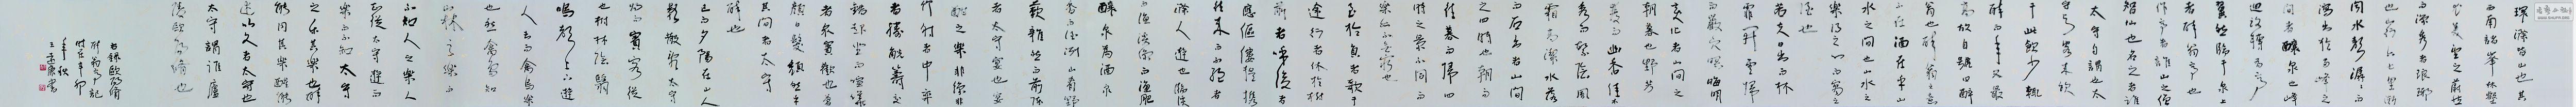 環滁皆山也其
西南諸峯林壑
尤美望之蔚然
而深秀者琅琊
也山行六七里漸
聞水聲潺潺而
瀉出於兩峰之
間者釀泉也峰
迴路轉有亭
翼然臨于泉上
者醉翁亭也
作亭者誰山之僧
智仙也名之者誰
太守自謂也太
守與客來飲
于此飲少輒
醉而年又最
高故自號曰醉
翁也醉翁之意
不在酒在乎山
水之間也山水之
樂得之心而寓之
酒也
若夫日出而林
霏開雲歸
而巖穴暝晦明
變化者山間之
朝暮也野芳
發而幽香佳木
秀而繁陰風
霜高潔水落
而石出者山間
之四時也朝而
往暮而歸四
時之景不同而
樂亦無窮也
至於負者歌于
途行者休於樹
前者呼後者
應傴僂提攜
往來而不絕者
滁人遊也臨溪
而漁溪深而魚肥
釀泉為酒泉
香而酒洌山肴野
蔌雜然而前陳
者太守宴也宴
酣之樂非絲非
竹射者中弈
者勝觥籌交
錯起坐而諠譁
者衆賓歡也蒼
顏白髮頹然乎
其間者太守
醉也
已而夕陽在山人
影散亂太守
歸而賓客從
也樹林陰翳
鳴聲上下遊
人去而禽鳥樂
也然而禽鳥知
山林之樂而
不知人之樂人
知從太守遊而
樂而不知太守
之樂其樂也醉
能同其樂醒能
述以文者太守也
太守謂誰廬
陵歐陽脩也
歐陽脩
醉翁亭記
時在辛卯
年秋